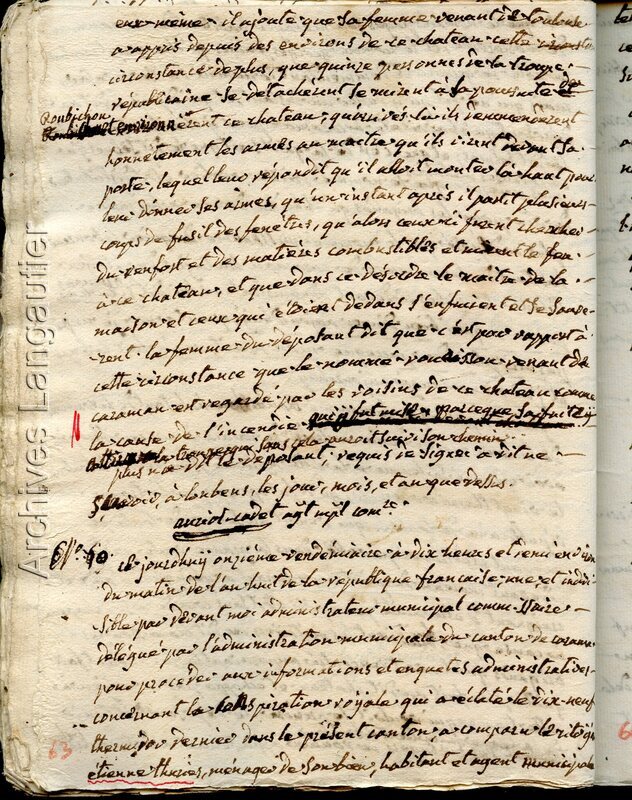 eux-même. il ajoute que sa femme venant de toulouse
a appris depuis des environs de ce chateau cette
circonstance de plus, que quinze personnes de la troupe
républicaine se detacherent se mirent à la poursuite de
Roubichon
et environnèrent ce chateau; qu'arrivés là ils demenderent
honnetement les armes au maitre qu'ils virent devant sa
porte, lequel leur répondit qu'il alloit monter là haut pour
leur donner ses armes, qu'un instant après il partit plusieurs
coups de fusil des fenêtres, qu'alors ceux-ci furent chercher
du renfort et des matières combustibles et mirent le feu
à ce chateau, et que dans ce desordre le maitre de la
maison et ceux qui étoient dedans s'enfuirent et se sauve-
rent. la femme du déposant dit que c'est par rapport à
cette circonstance que le nommé venant de
caraman est regardé par les voisins de ce chateau comme
la cause de l'incendie qui y fut mis parceque sa fuite y
attira la troupe que sans cela auroit suivi son chemin
plus n'a dit le déposant, requis de signer a dit ne
savoir, à loubens, les jour, mois, et an que dessus.
auriol-cadet agt mpl comre
N°. 60
ce jourdhuy onzième vendémiaire à dix heures et demi environ
du matin de l'an huit de la république française, une, et indivi-
sible par devant moi administrateur municipal commissaire
délégué par l'administration municipale du canton de caraman
pour proceder aux informations et enquetes administratives
concernant la conspiration royale qui a éclaté le dix-neuf
thermidor dernier dans le présent canton a comparu le citoyen
étienne thuries, ménager de son bien, habitant et agent municipal
63
Archives Langautier